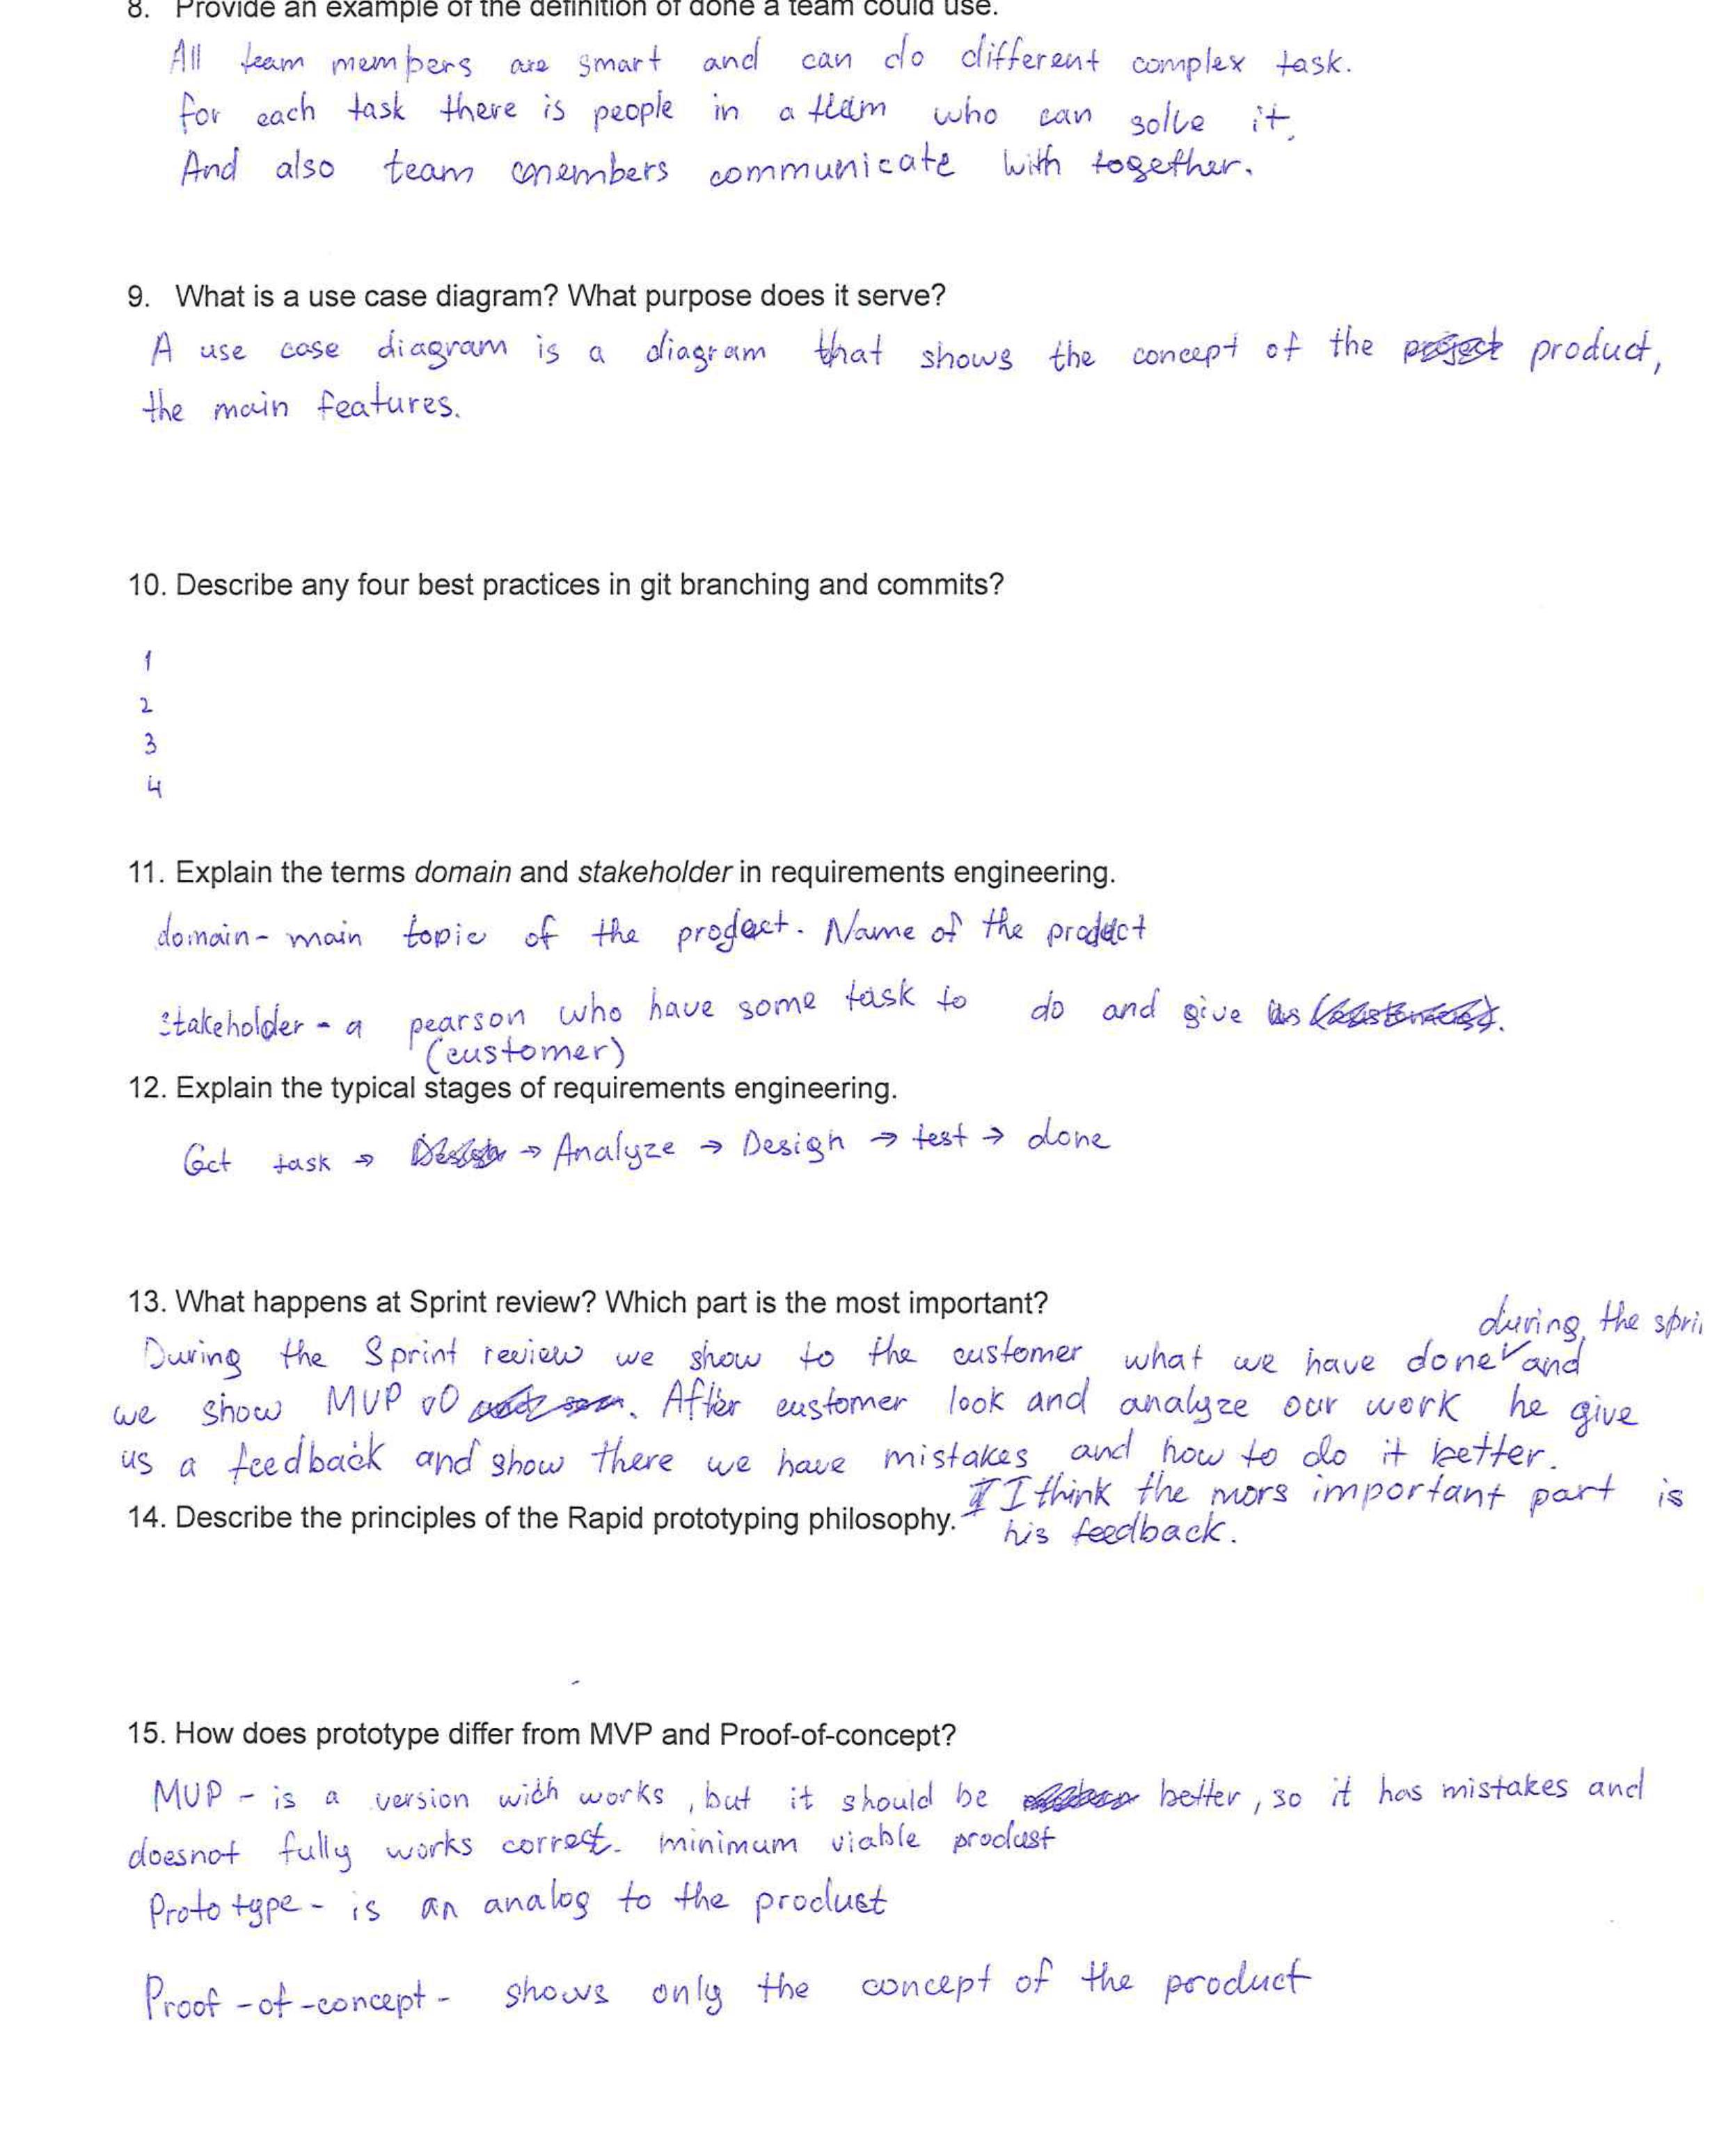 8. Provide an example of the definition of done a team could use.
All team members are smart and can do different complex task.
for each task there is people in a team who can solve it.
And also team members communicate with together.
9. What is a use case diagram? What purpose does it serve?
A use case diagram is a diagram that shows the concept of the product,
the main features.
10. Describe any four best practices in git branching and commits?
1
2
3
4
11. Explain the terms domain and stakeholder in requirements engineering.
domain - main topic of the project. Name of the product
stakeholder - a pearson who have some task to do and give us
(customer)
12. Explain the typical stages of requirements engineering.
Get task → → Analyze → Design → test → done
13. What happens at Sprint review? Which part is the most important?
during the spri
During the Sprint review we show to the customer what we have done and
we show MVP v0 . After customer look and analyze our work he give
us a feedback and show there we have mistakes and how to do it better.
I think the mors important part is
14. Describe the principles of the Rapid prototyping philosophy.
his feedback.
15. How does prototype differ from MVP and Proof-of-concept?
MVP - is a version wich works, but it should be better, so it has mistakes and
doesnot fully works correct. minimum viable product
Prototype - is an analog to the product
Proof-of-concept - shows only the concept of the product